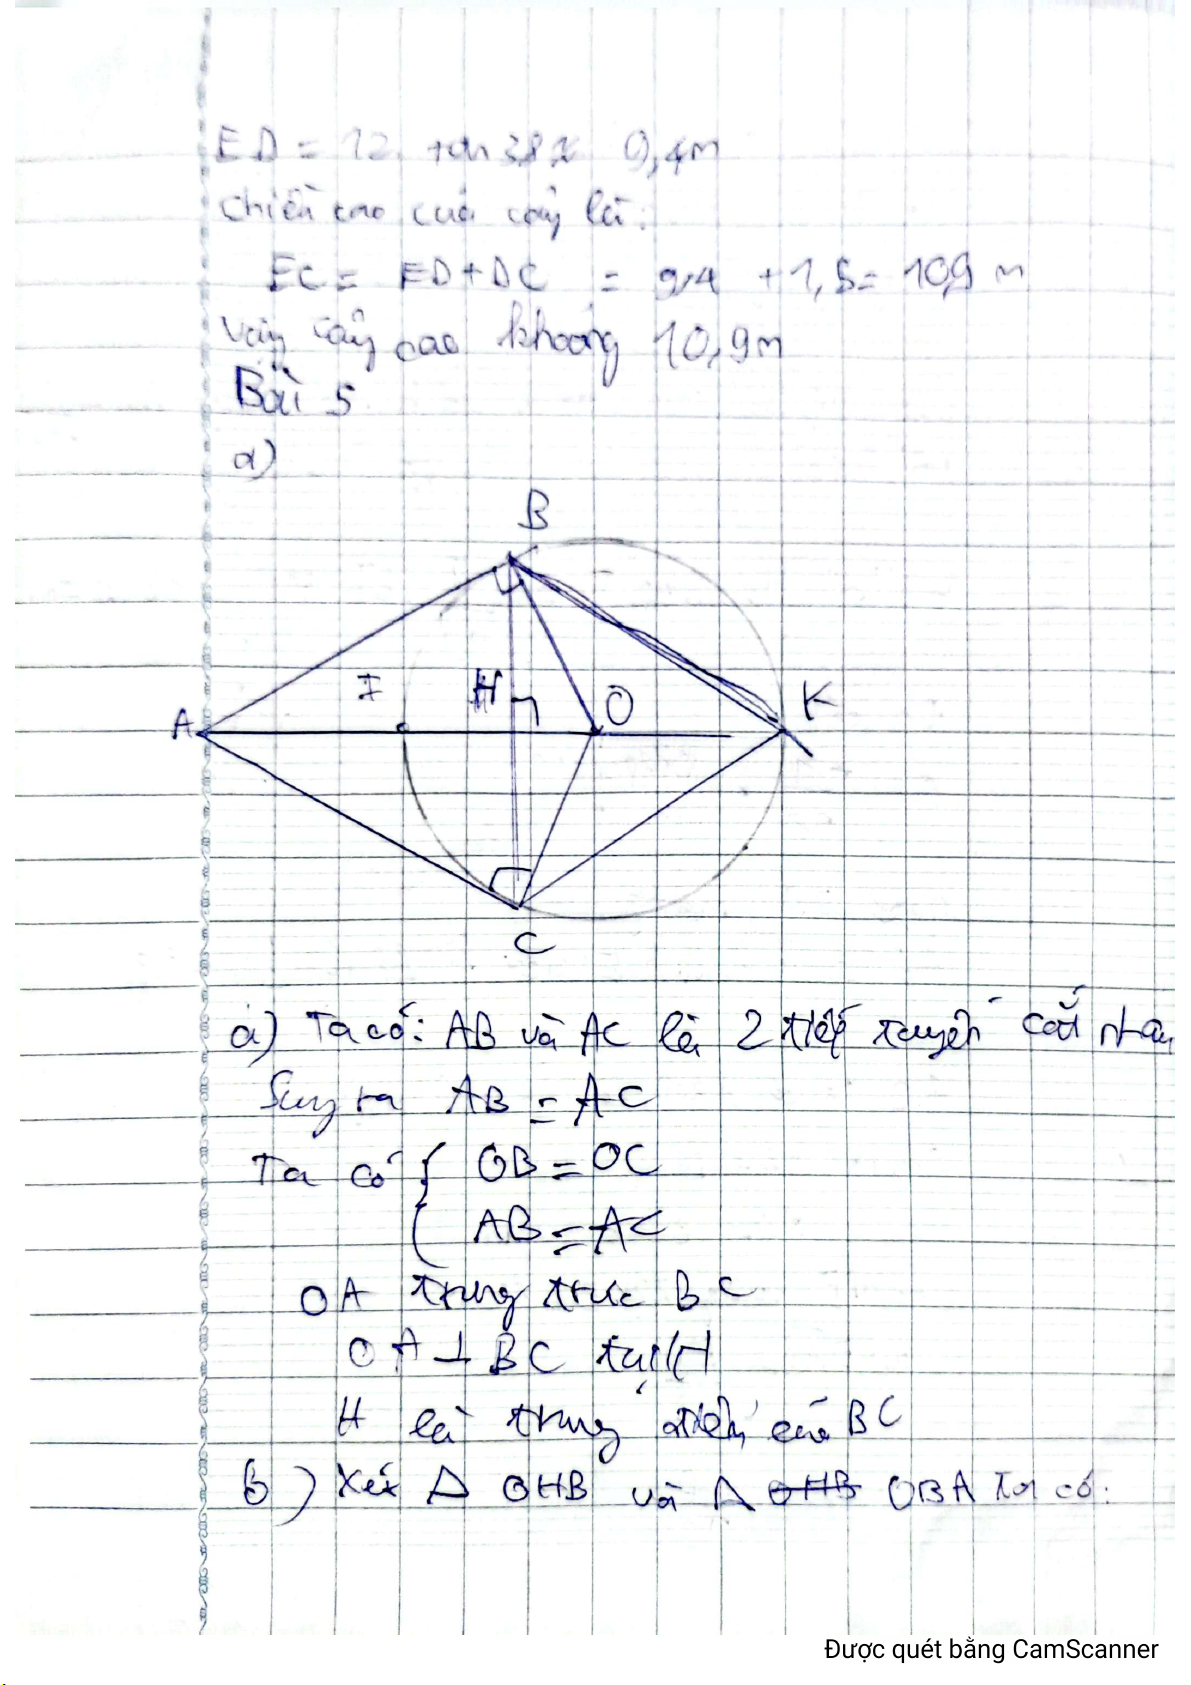 ED = 12. tan 38 ≈ 9,4m
Chiều cao của cây là:
EC = ED + DC = 9,4 + 1,5 = 10,9 m
Vậy cây cao khoảng 10,9m
Bài 5
a)
B
I
H
O
K
A
C
a) Ta có: AB và AC là 2 tiếp tuyến cắt nhau
Suy ra AB = AC
Ta có { OB = OC
AB = AC
OA trung trực BC
OA ⊥ BC tại H
H là trung điểm của BC
b) Xét Δ OHB và Δ OHB OBA ta có:
Được quét bằng CamScanner